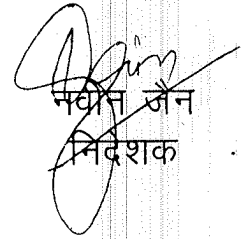 नवीन जैन
निदेशक